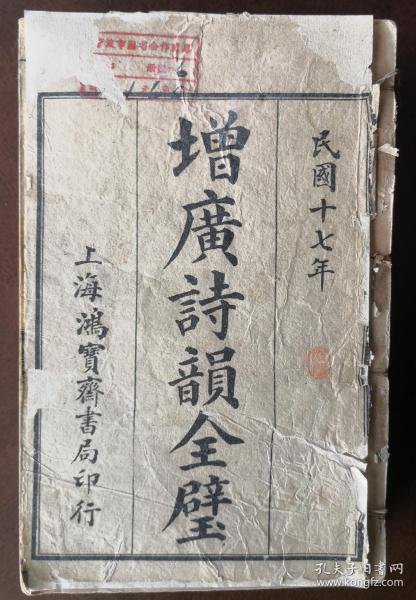 民國十七年
增廣詩韻全璧
上海鴻寶齋書局印行
孔夫子旧书网
www.kongfz.com